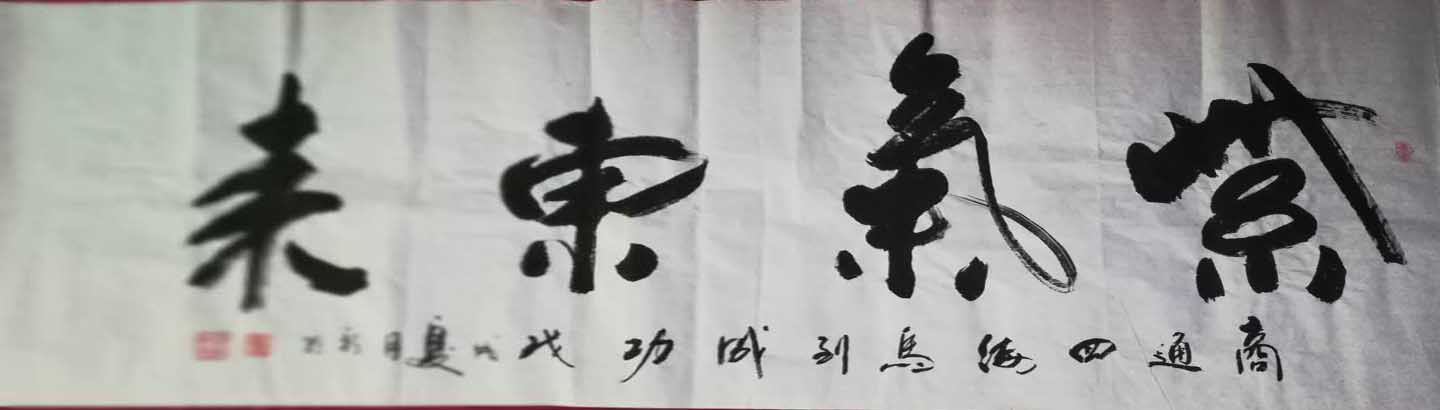 紫氣東来
商通四海馬到成功戊戌夏月